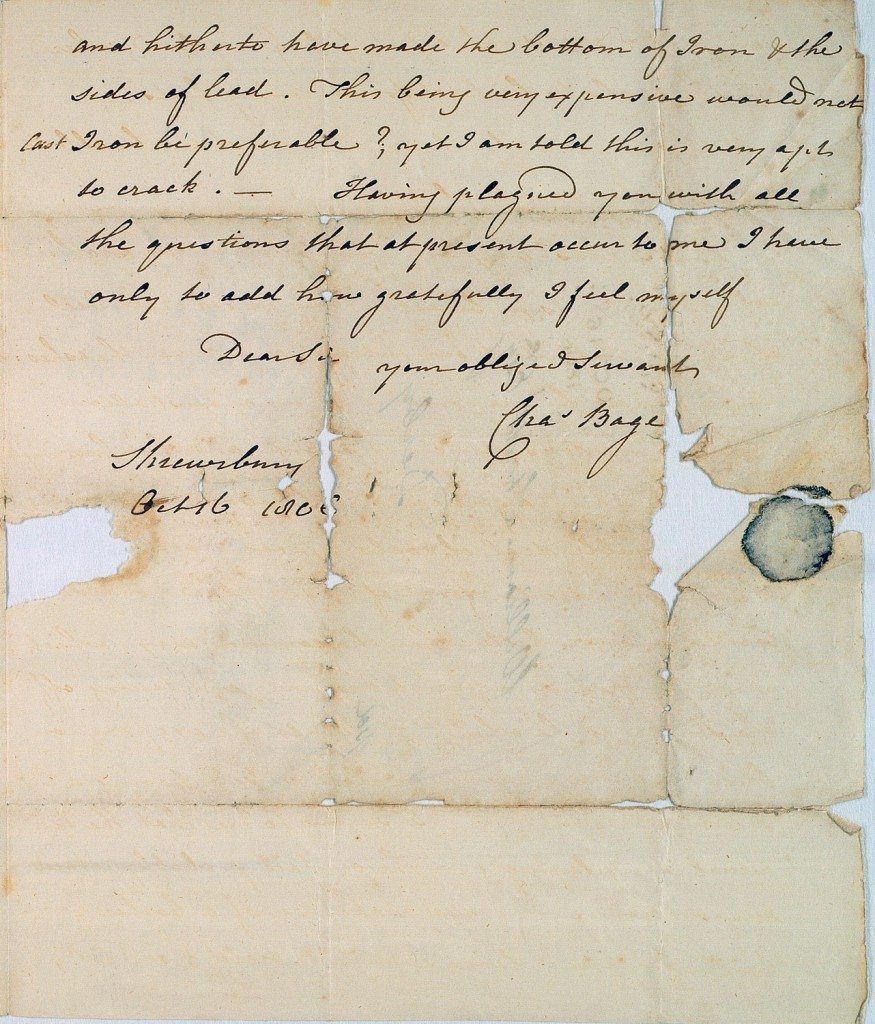 and hitherto have made the bottom of Iron & the
sides of lead. This being very expensive would not
Cast Iron be preferable?, yet I am told this is very apt
to crack. — Having plagued you with all
the questions that at present occur to me I have
only to add how gratefully I feel myself
Dear Sir
your obliged Servant
Chas Bage
Shrewsbury
Oct 16